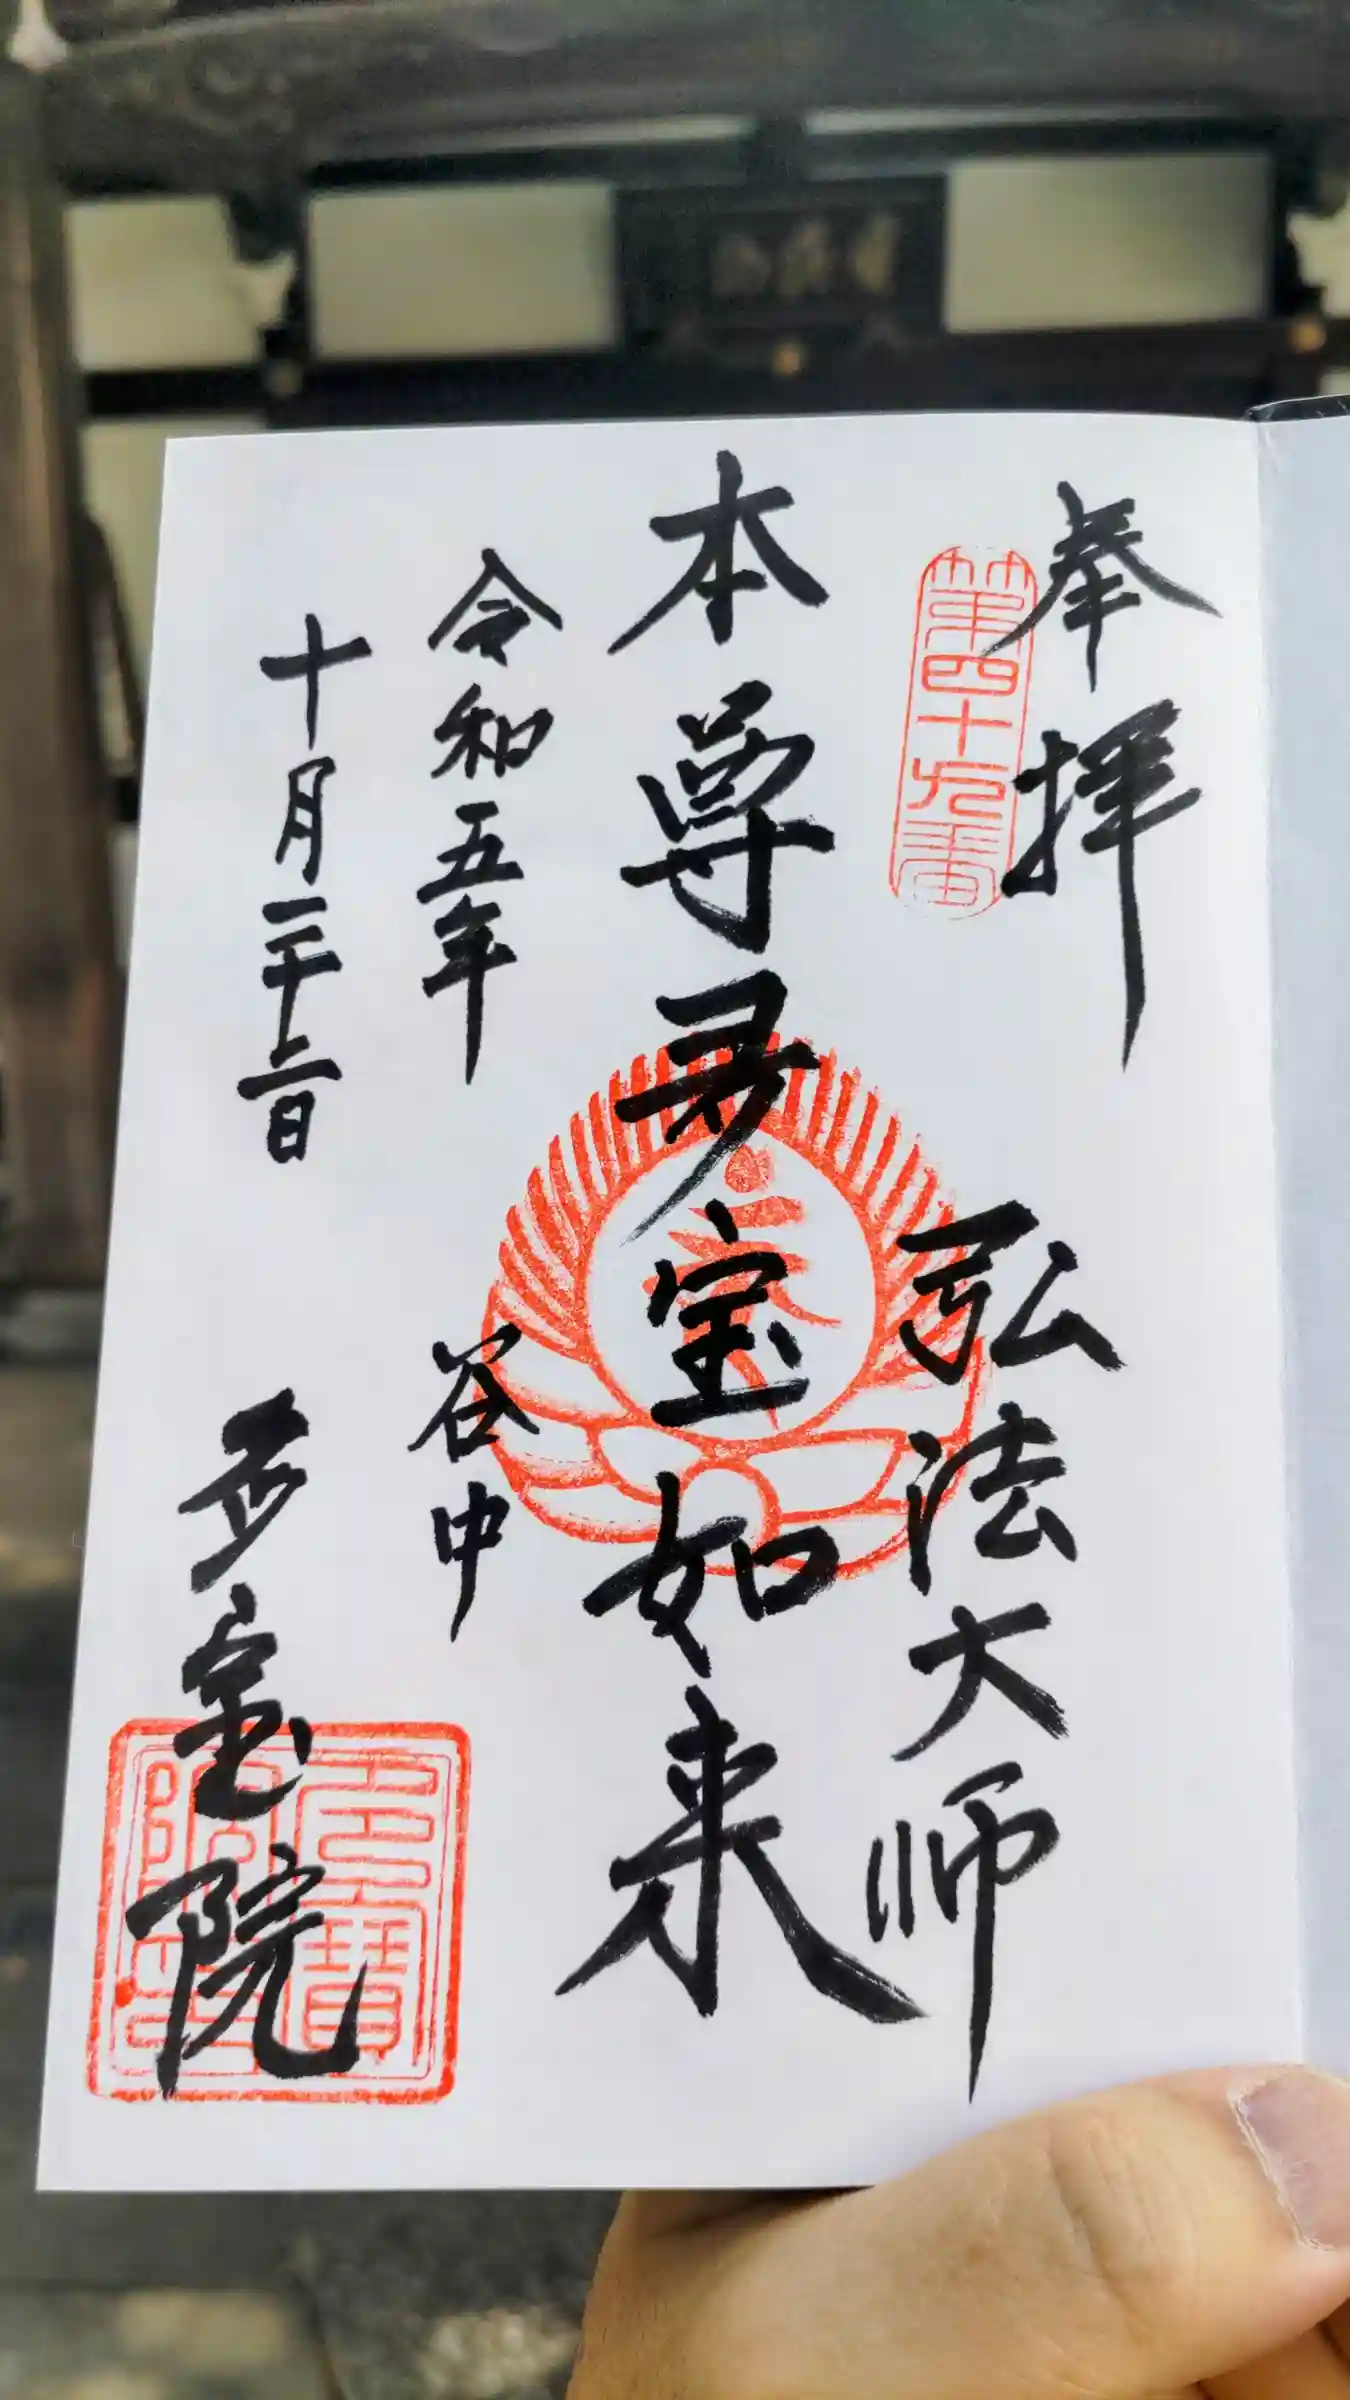 奉拝
第四十九番
弘法大師
本尊多宝如来
令和五年
谷中
十月二十二日
多宝院
多寶
院印